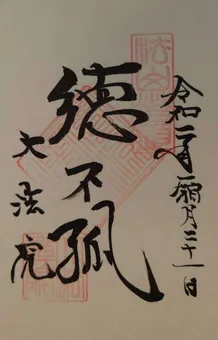 令和二年霜月二十一日
德不孤
大法院